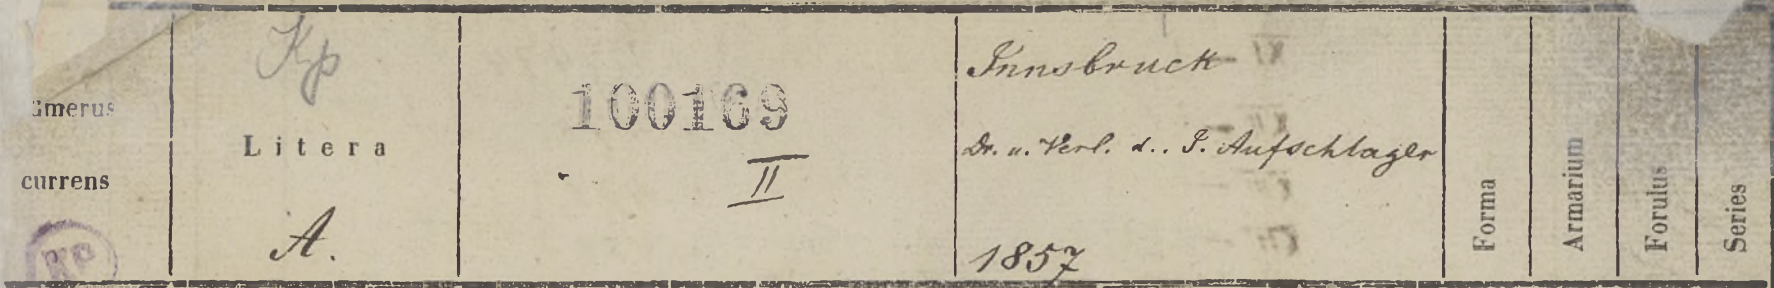 Numerus
currens
Kp
Litera
A.
100169
II
Innsbruck
Dr. u. Verl. d.. J. Aufschlager
1857
Forma
Armarium
Forulus
Series